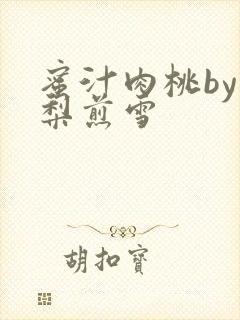 蜜汁肉桃by
梨煎雪
胡扣寶